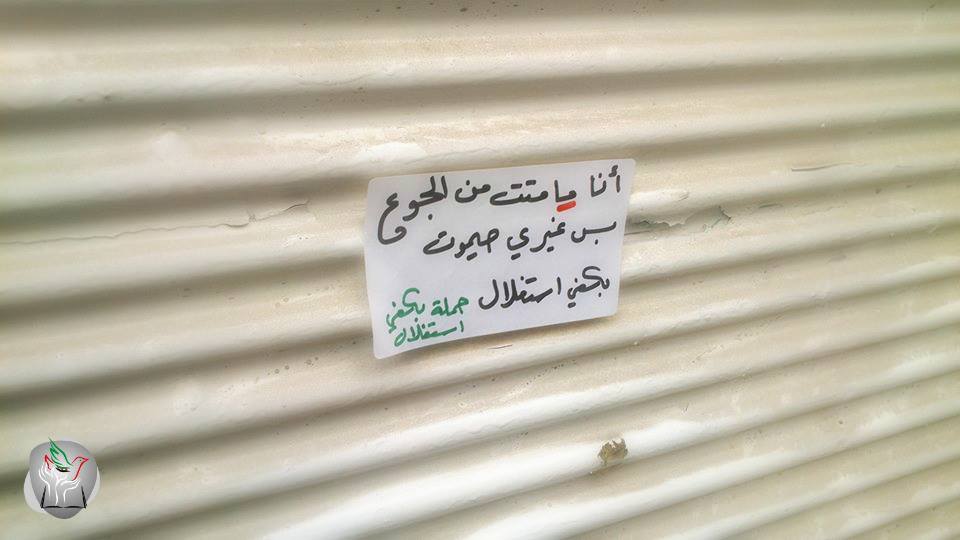 أنا ما متت من الجوع
بس غيري حيموت
بكفي استغلال
حملة بكفي
استغلال